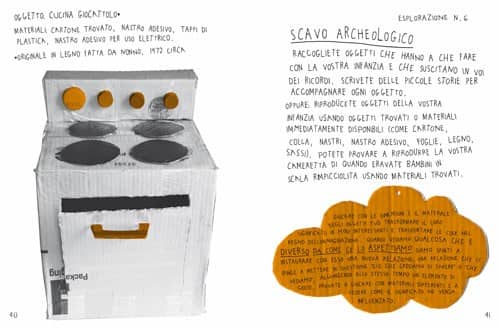 OGGETTO: CUCINA GIOCATTOLO•
MATERIALI: CARTONE TROVATO, NASTRO ADESIVO, TAPPI DI
PLASTICA, NASTRO ADESIVO PER USO ELETTRICO.
•ORIGINALE IN LEGNO FATTA DA NONNO, 1972 CIRCA
Packa
40
ESPLORAZIONE N. 6
SCAVO ARCHEOLOGICO
RACCOGLIETE OGGETTI CHE HANNO A CHE FARE
CON LA VOSTRA INFANZIA E CHE SUSCITANO IN VOI
DEI RICORDI. SCRIVETE DELLE PICCOLE STORIE PER
ACCOMPAGNARE OGNI OGGETTO.
OPPURE: RIPRODUCETE OGGETTI DELLA VOSTRA
INFANZIA USANDO OGGETTI TROVATI O MATERIALI
IMMEDIATAMENTE DISPONIBILI (COME CARTONE,
COLLA, NASTRI, NASTRO ADESIVO, FOGLIE, LEGNO,
SASSI). POTETE PROVARE A RIPRODURRE LA VOSTRA
CAMERETTA DI QUANDO ERAVATE BAMBINI IN
SCALA RIMPICCIOLITA USANDO MATERIALI TROVATI.
GIOCARE CON LE DIMENSIONI E IL MATERIALE
DEGLI OGGETTI PUÒ TRASFORMARE IL LORO
SIGNIFICATO IN MODI INTERESSANTI E TRASPORTARE LE COSE NEL
REGNO DELL'IMMAGINAZIONE. QUANDO VEDIAMO QUALCOSA CHE È
DIVERSO DA COME CE LO ASPETTIAMO, SIAMO SPINTI A
INSTAURARE CON ESSO UNA NUOVA RELAZIONE, UNA RELAZIONE CHE CI
SPINGE A METTERE IN QUESTIONE CIÒ CHE CREDIAMO DI SAPERE O CHE
VEDIAMO, AGGIUNGENDO ALLO STESSO TEMPO UN ELEMENTO DI
GIOCO. PROVATE A GIOCARE CON MATERIALI DIFFERENTI E A
VEDERE COME IL SIGNIFICATO NE VENGA
INFLUENZATO.
41